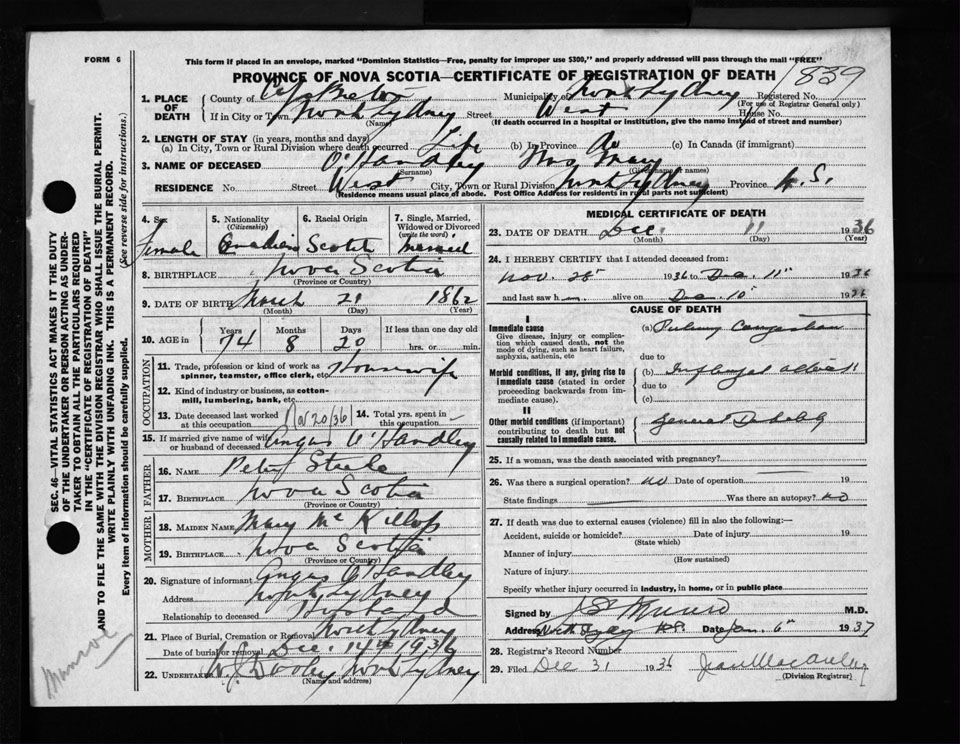 FORM 6
This form if placed in an envelope, marked "Dominion Statistics—Free, penalty for improper use $300," and properly addressed will pass through the mail "FREE"
PROVINCE OF NOVA SCOTIA—CERTIFICATE OF REGISTRATION OF DEATH
1839
1. PLACE OF DEATH County of Cape Breton Municipality of North Sydney Registered No.
(For use of Registrar General only)
If in City or Town North Sydney Street West House No.
(Name) (If death occurred in a hospital or institution, give the name instead of street and number)
2. LENGTH OF STAY (in years, months and days)
(a) In City, Town or Rural Division where death occurred Life (b) In Province do (c) In Canada (if immigrant)
3. NAME OF DECEASED O'Handley Mrs Mary
(Surname) (Given name or names)
RESIDENCE No. Street West City, Town or Rural Division North Sydney Province N.S.
(Residence means usual place of abode. Post Office Address for residents in rural parts not sufficient)
4. Sex Female
5. Nationality (Citizenship) Canadian
6. Racial Origin Scotch
7. Single, Married, Widowed or Divorced (write the word) Married
8. BIRTHPLACE Nova Scotia
(Province or Country)
9. DATE OF BIRTH March 21 1862
(Month) (Day) (Year)
10. AGE in Years 74 Months 8 Days 20 If less than one day old hrs. or min.
OCCUPATION
11. Trade, profession or kind of work as spinner, teamster, office clerk, etc. Housewife
12. Kind of industry or business, as cotton-mill, lumbering, bank, etc.
13. Date deceased last worked at this occupation Nov 20/36 14. Total yrs. spent in this occupation
15. If married give name of wife or husband of deceased Angus O'Handley
FATHER
16. NAME Peter Steele
17. BIRTHPLACE Nova Scotia
(Province or Country)
MOTHER
18. MAIDEN NAME Mary McKillop
19. BIRTHPLACE Nova Scotia
(Province or Country)
20. Signature of informant Angus O'Handley
Address North Sydney
Relationship to deceased Husband
21. Place of Burial, Cremation or Removal North Sydney
Date of burial or removal Dec. 14th 1936
22. UNDERTAKER W.J. Dooley North Sydney
(Name and address)
MEDICAL CERTIFICATE OF DEATH
23. DATE OF DEATH Dec. 11 1936
(Month) (Day) (Year)
24. I HEREBY CERTIFY that I attended deceased from:
Nov. 28th 1936 to Dec. 11th 1936
and last saw h alive on Dec. 10th 1936
CAUSE OF DEATH
I
Immediate cause
Give disease, injury or complication which caused death, not the mode of dying, such as heart failure, asphyxia, asthenia, etc
(a) Congestion
due to
Morbid conditions, if any, giving rise to immediate cause (stated in order proceeding backwards from immediate cause).
(b)
due to
(c)
II
Other morbid conditions (if important) contributing to death but not causally related to immediate cause.
General Debility
25. If a woman, was the death associated with pregnancy?
26. Was there a surgical operation? no Date of operation 19
State findings Was there an autopsy? no
27. If death was due to external causes (violence) fill in also the following:—
Accident, suicide or homicide? Date of injury 19
(State which)
Manner of injury
(How sustained)
Nature of injury
Specify whether injury occurred in industry, in home, or in public place
Signed by J S Munro M.D.
Address North Sydney N.S. Date Jan. 6th 1937
28. Registrar's Record Number
29. Filed Dec 31 1936
(Division Registrar)
SEC. 46—VITAL STATISTICS ACT MAKES IT THE DUTY
OF THE UNDERTAKER OR PERSON ACTING AS UNDER-
TAKER TO OBTAIN ALL THE PARTICULARS REQUIRED
IN THE "CERTIFICATE OF REGISTRATION OF DEATH"
AND TO FILE THE SAME WITH THE DIVISION REGISTRAR WHO SHALL ISSUE THE BURIAL PERMIT.
WRITE PLAINLY WITH UNFADING INK. THIS IS A PERMANENT RECORD.
Every item of information should be carefully supplied. (See reverse side for instructions.)
Munroe